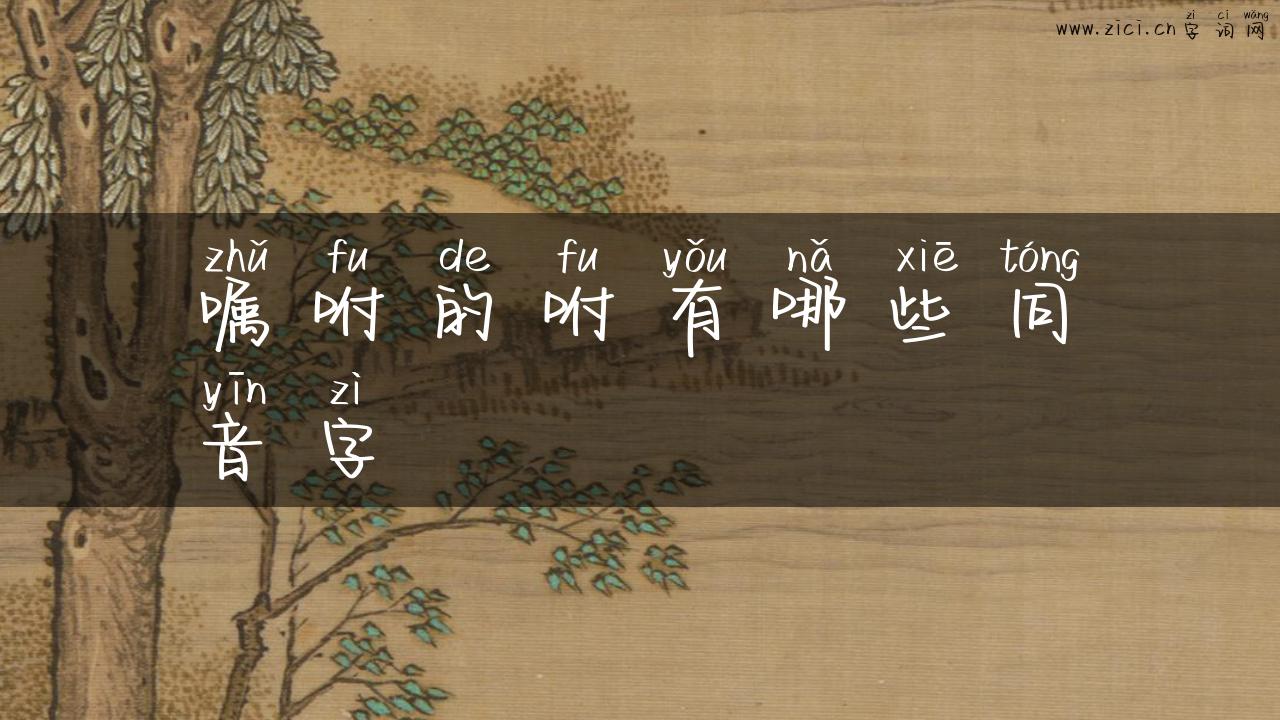 zì cí wǎng
www.zici.cn 字词网
zhǔ fu de fu yǒu nǎ xiē tóng
嘱咐的咐有哪些同
yīn zì
音字